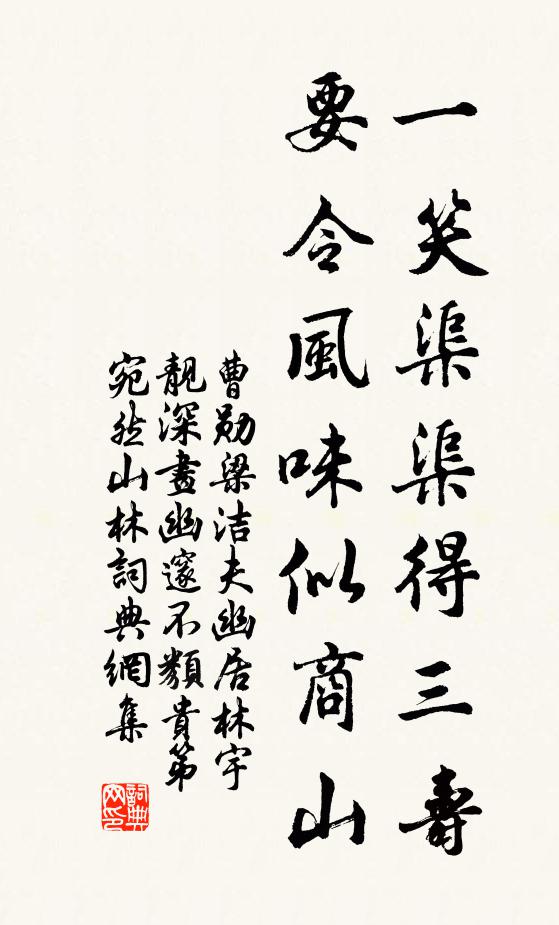 一笑渠渠得三壽
要令風味似商山
曹勛梁洁夫幽居林宇
靚深晝幽邃不類貴第
宛然山林詞典網集
詞典网印